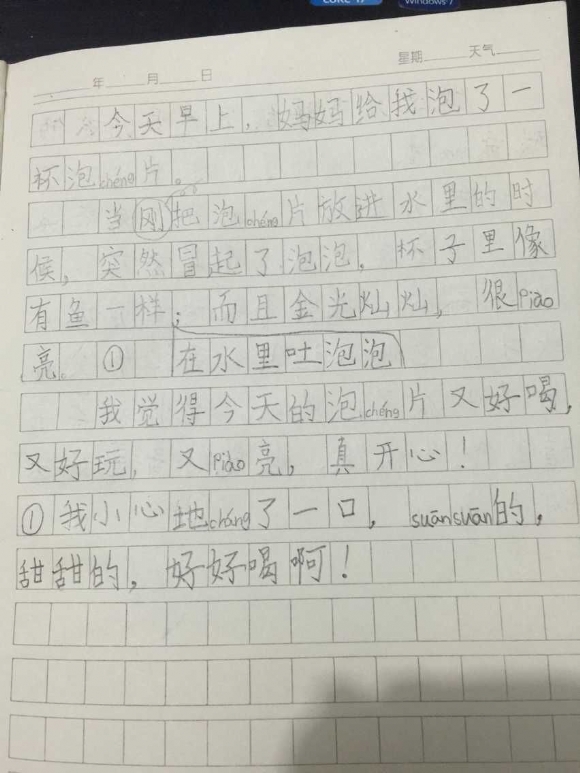 CORE i7
Windows 7
年 月 日 星期 天气
今天早上，妈妈给我泡了一
杯泡chéng片。
当刚把泡chéng片放进水里的时
候，突然冒起了泡泡，杯子里像
有鱼一样；而且金光灿灿，很piào
亮。① 在水里吐泡泡
我觉得今天的泡chéng片又好喝，
又好玩，又piào亮，真开心！
①我小心地cháng了一口，suānsuān的，
甜甜的，好好喝啊！